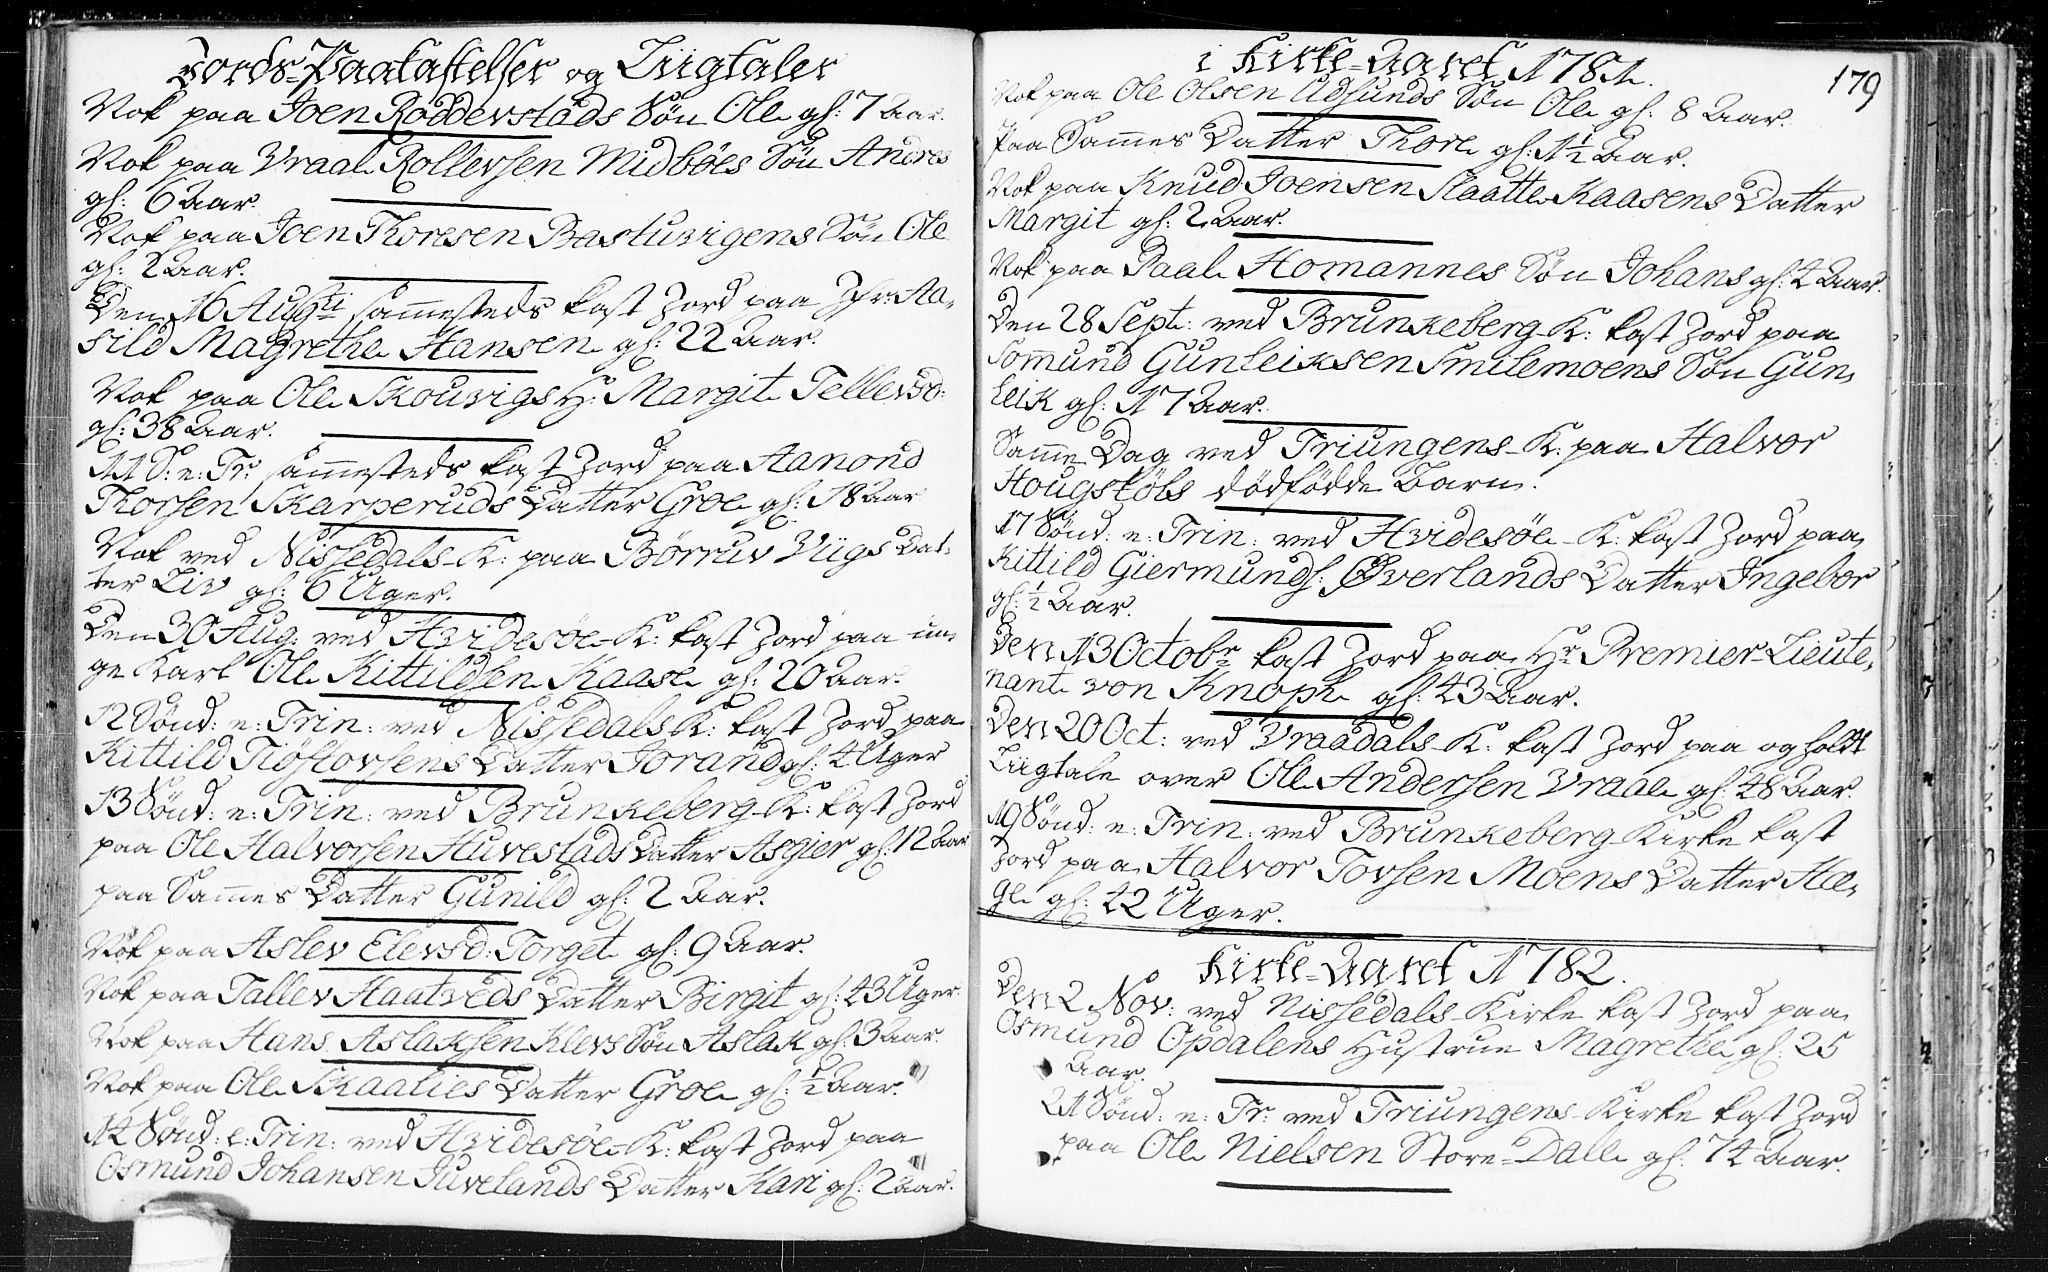 Jords-Paakastelser og Liigtaler
Nok paa Joen Rødderstads Søn Ole gl: 7 Aar.
Nok paa Vraal Rollevsen Midbøes Søn Andres
gl: 6 Aar.
Nok paa Joen Thoresen Bastuvigens Søn Ole
gl: 2 Aar.
Den 16 Augusti sammesteds kast Jord paa Jfr: Aa-
sild Magrethe Hansen gl: 22 Aar.
Nok paa Ole Skouvigs H: Margit Tellevsd:
gl: 38 Aar.
11 S: e: Tr: sammesteds kast Jord paa Aanond
Thorsen Skarperuds Datter Groe gl: 18 Aar
Nok ved Nissedals-K: paa Børruv Viigs Dat-
ter Liv gl: 6 Uger.
Den 30 Aug: ved Hvidesøe-K: kast Jord paa un-
ge Karl Ole Kittildsen Kaase gl: 20 Aar.
12 Sønd: e: Trin: ved Nissedals K: kast Jord paa
Kittild Tiøstovsens Datter Jorand gl: 4 Uger
13 Sønd: e: Trin: ved Brunkeberg-K: kast Jord
paa Ole Halvorsen Huvestads Datter Asgier gl: 12 Aar
paa Sammes Datter Gunild gl: 2 Aar.
Nok paa Aslev Elevsd: Torget gl: 9 Aar.
Nok paa Tallev Haatveds Datter Birgit gl: 43 Uger.
Nok paa Hans Aslaksen Klevs Søn Aslak gl: 3 Aar.
Nok paa Ole Skaalies Datter Groe gl: ½ Aar.
14 Sønd: e: Trin: ved Hvidesøe-K: kast Jord paa
Osmund Johansen Juvelands Datter Kari gl: 2 Aar.
i Kirke-Aaret 1781.
179
Nok paa Ole Olsen Udsunds Søn Ole gl: 8 Aar.
Paa Sammes Datter Thore gl: 1½ Aar.
Nok paa Knud Joensen Slaatte Kaasens Datter
Margit gl: 2 Aar.
Nok paa Paal Homannes Søn Johans gl: 4 Aar.
Den 28 Sept: ved Brunkeberg-K: kast Jord paa
Sommund Gunleiksen Smilemoens Søn Gun-
leik gl: 17 Aar.
Samme Dag ved Triungens-K: paa Halvor
Hougskøbs dødfødde Barn.
17 Sønd: e: Trin: ved Hvidesøe-K: kast Jord paa
Kittild Giermunds: Øverlands Datter Ingebor
gl: ½ Aar.
Den 13 Octobr kast Jord paa Hr Premier-Lieute-
nant von Knoph gl: 43 Aar.
Den 20 Oct: ved Vraadals-K: kast Jord paa og holdt
Liigtale over Ole Andersen Vraal gl: 48 Aar.
19 Sønd: e: Trin: ved Brunkeberg-Kirke kast
Jord paa Halvor Tovsen Moens Datter Hæ-
ge gl: 42 Uger.
Kirke-Aaret 1782.
Den 2 Nov: ved Nissedals Kirke kast Jord paa
Osmund Opdalens Hustrue Magrethe gl: 25
Aar.
21 Sønd: e: Tr: ved Triungens-Kirke kast Jord
paa Ole Nielsen Store-Dall gl: 74 Aar.